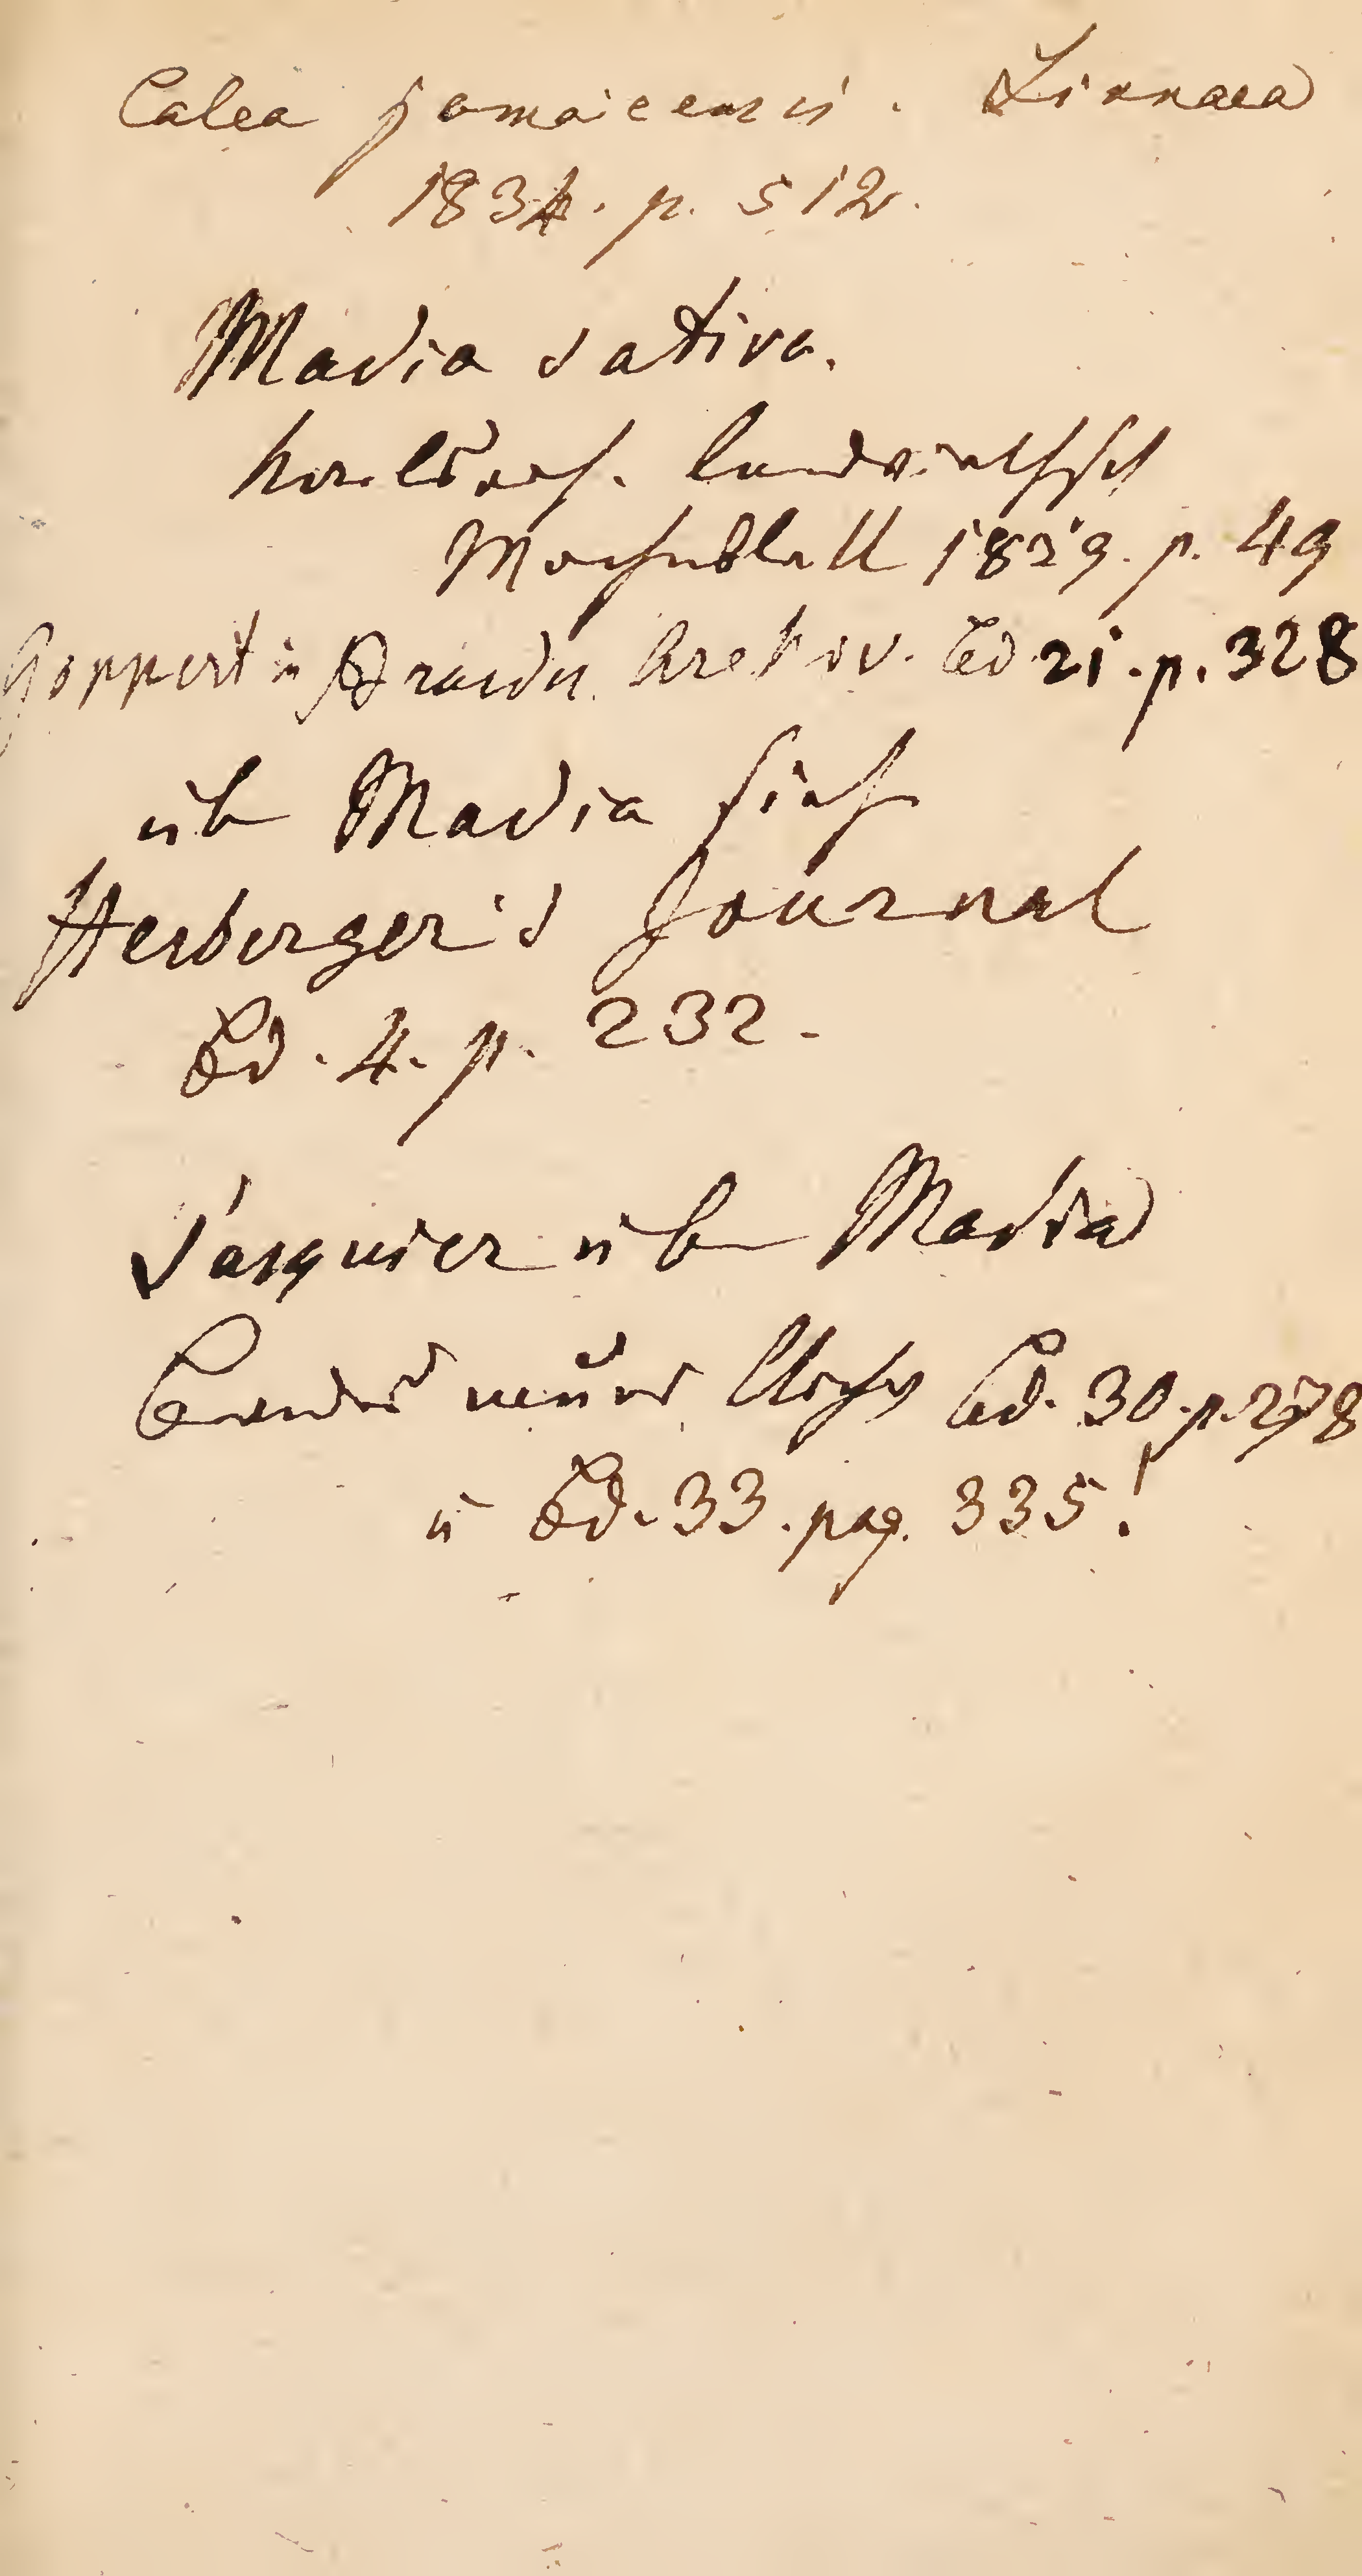 Calea jamaicensis. Linnaea
1834. p. 512.
Madia sativa.
landwirthsch
Wochenblatt 1829. p. 49
Göppert in Brandes Archiv. Bd 21. p. 328
üb Madia sieh
Herberger's Journal
Bd. 4. p. 232.
Pasquier üb Madia
Brandes neues Archiv Bd. 30. p. 278
u Bd. 33. pag. 335!